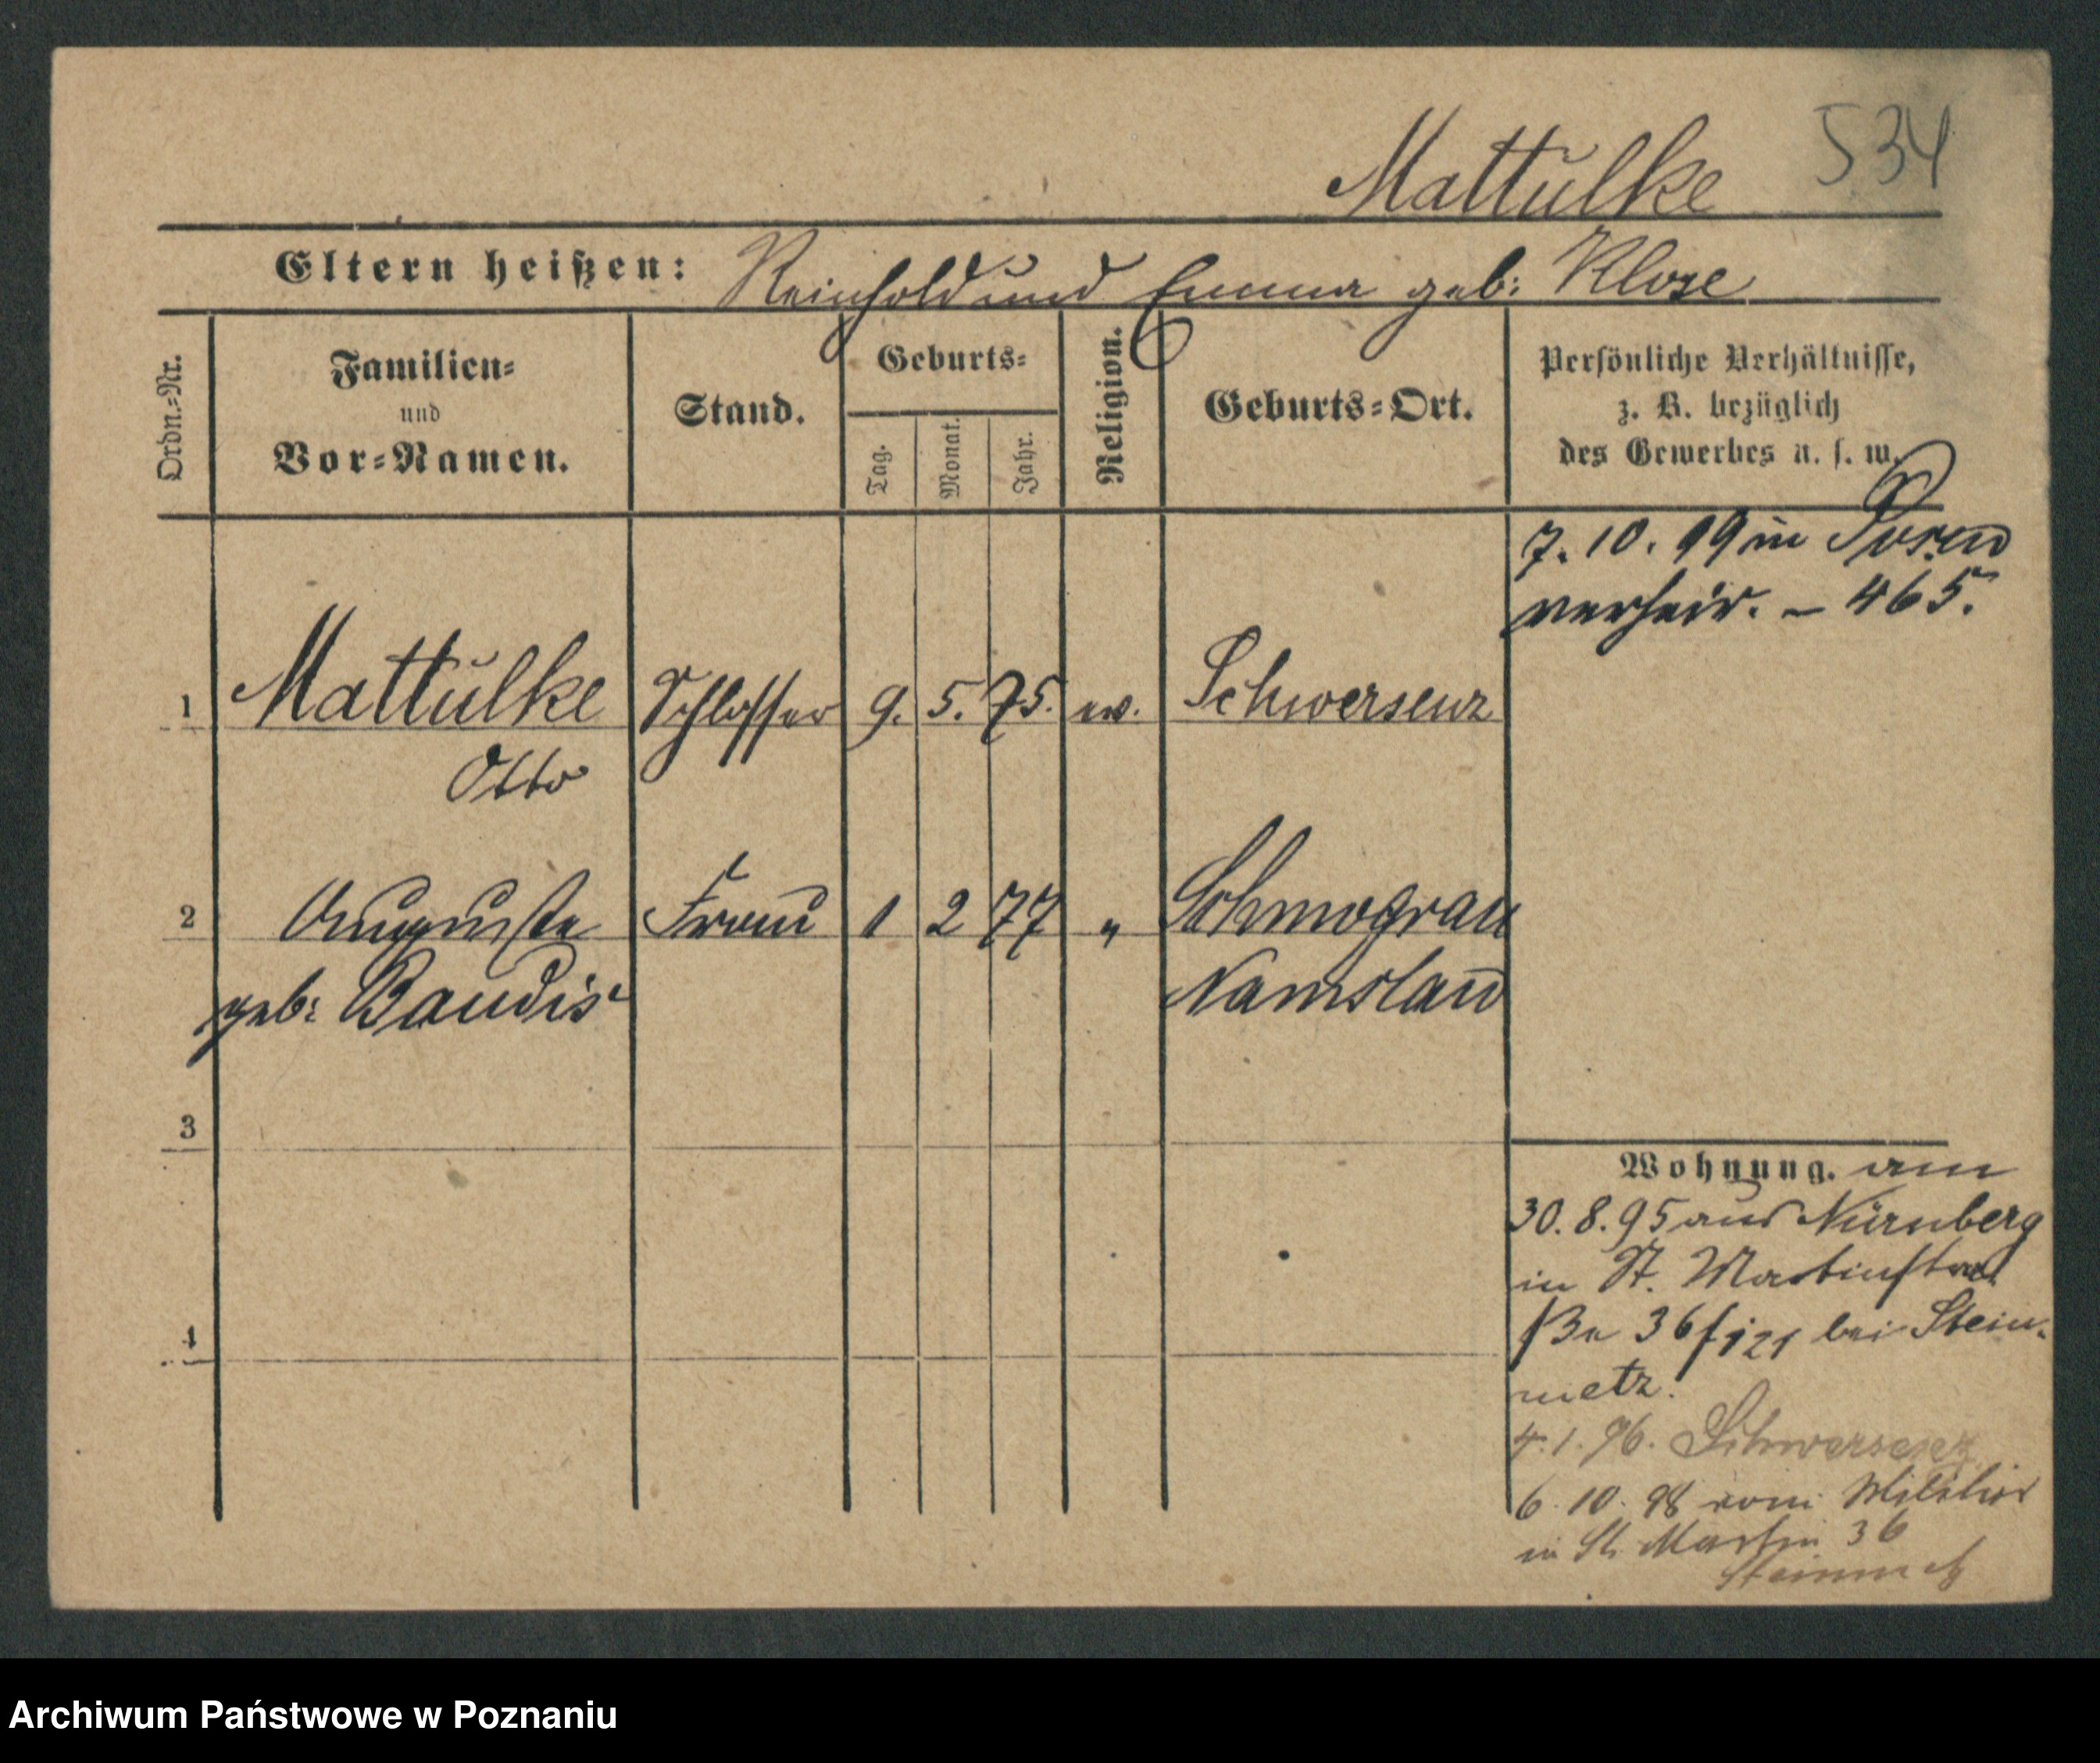 534
Mattulke
Eltern heißen: Reinhold und Emma geb: Klose
Ordn.-Nr.
Familien-
und
Vor-Namen.
Stand.
Geburts-
Tag.
Monat.
Jahr.
Religion.
Geburts-Ort.
Persönliche Verhältnisse,
z. B. bezüglich
des Gewerbes u. s. w.
7. 10. 99 in Posen
verheir. – 465.
1 Mattulke Schlosser 9. 5. 75. ev. Schwersenz
Otto
2 Auguste Frau 1 2 77 " Schmograu
geb: Baudis Namslau
3
4
Wohnung. am
30. 8. 95 aus Nürnberg
in St. Martinstra
ße 36 bei Stein-
metz.
4. 1. 96. Schwersenz
6. 10. 98 vom Militär
in St. Martin 36
Steinmetz
Archiwum Państwowe w Poznaniu